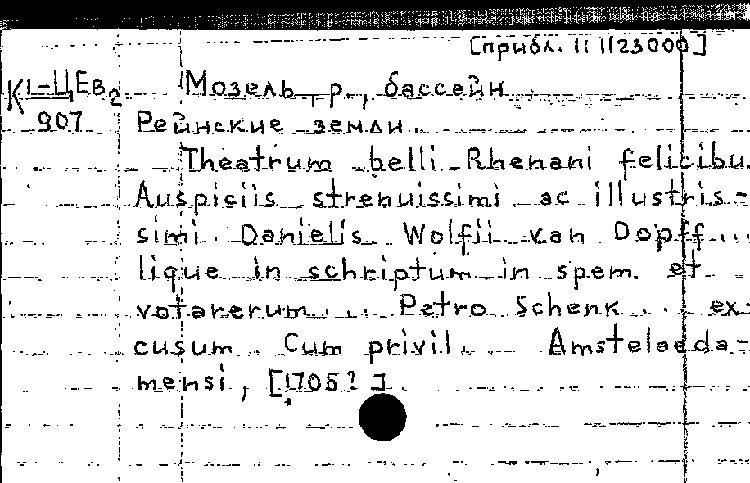 [прибл. 1:1123000]
К 1-ЦЕв2 Мозель, р., бассейн
907 Рейнские земли.
Theatrum belli Rhenani felicibu
Auspiciis strenuissimi ac illustris-
simi Danielis Wolfii van Dopff...
lique in schriptum in spem et
votarerum... Petro Schenk... ex-
cusum. Cum privil. Amsteloeda-
mensi, [1705?]